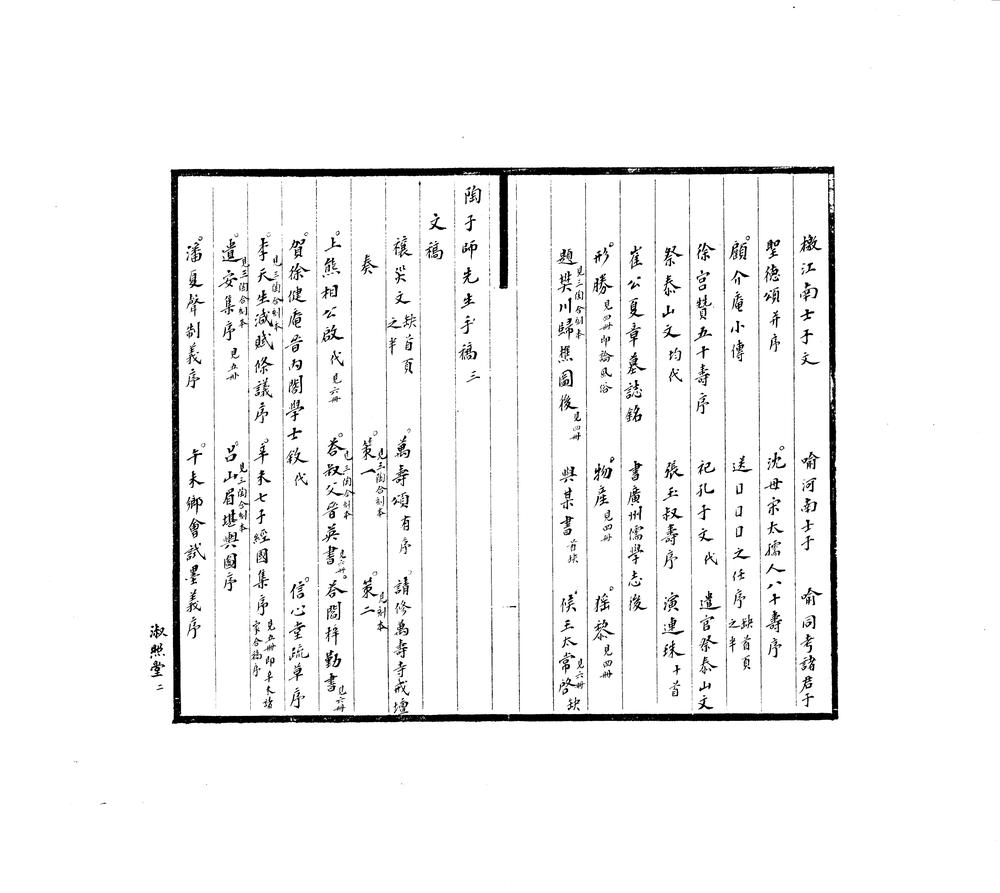 檄江南士子文　喻河南士子　喻同考諸君子
聖德頌并序　沈母宋太孺人八十壽序
顧介庵小傳　送日日日之任序缺首頁之半
徐宫贊五十壽序　祀孔子文代　遣官祭泰山文
祭泰山文均代　張玉叔壽序　演連珠十首
崔公夏章墓誌銘　書廣州儒學志後
形勝見四冊即論風俗　物產見四冊　猺黎見四冊
題樊川歸樵圖後見三陶合刻本見四冊　與某書首缺　候王太常啓見六冊缺
陶子師先生手稿三
文稿
禳災文缺首頁之半　萬壽頌有序　請修萬壽寺戒壇
奏　策一見三陶合刻本　策二見刻本
上熊相公啟代見六冊　答叔父晉英書見三陶合刻本見六冊　答閻梓勤書見六冊
賀徐健庵晋内閣學士啟代　信心堂疏草序
李天生減賦條議序見三陶合刻本　辛未七子經國集序見五冊即辛未諸家合稿序
遺安集序見三陶合刻本見五冊　呂山眉堪輿圖序見三陶合刻本
潘夏聲制義序　午未鄉會試墨義序
淑照堂　二